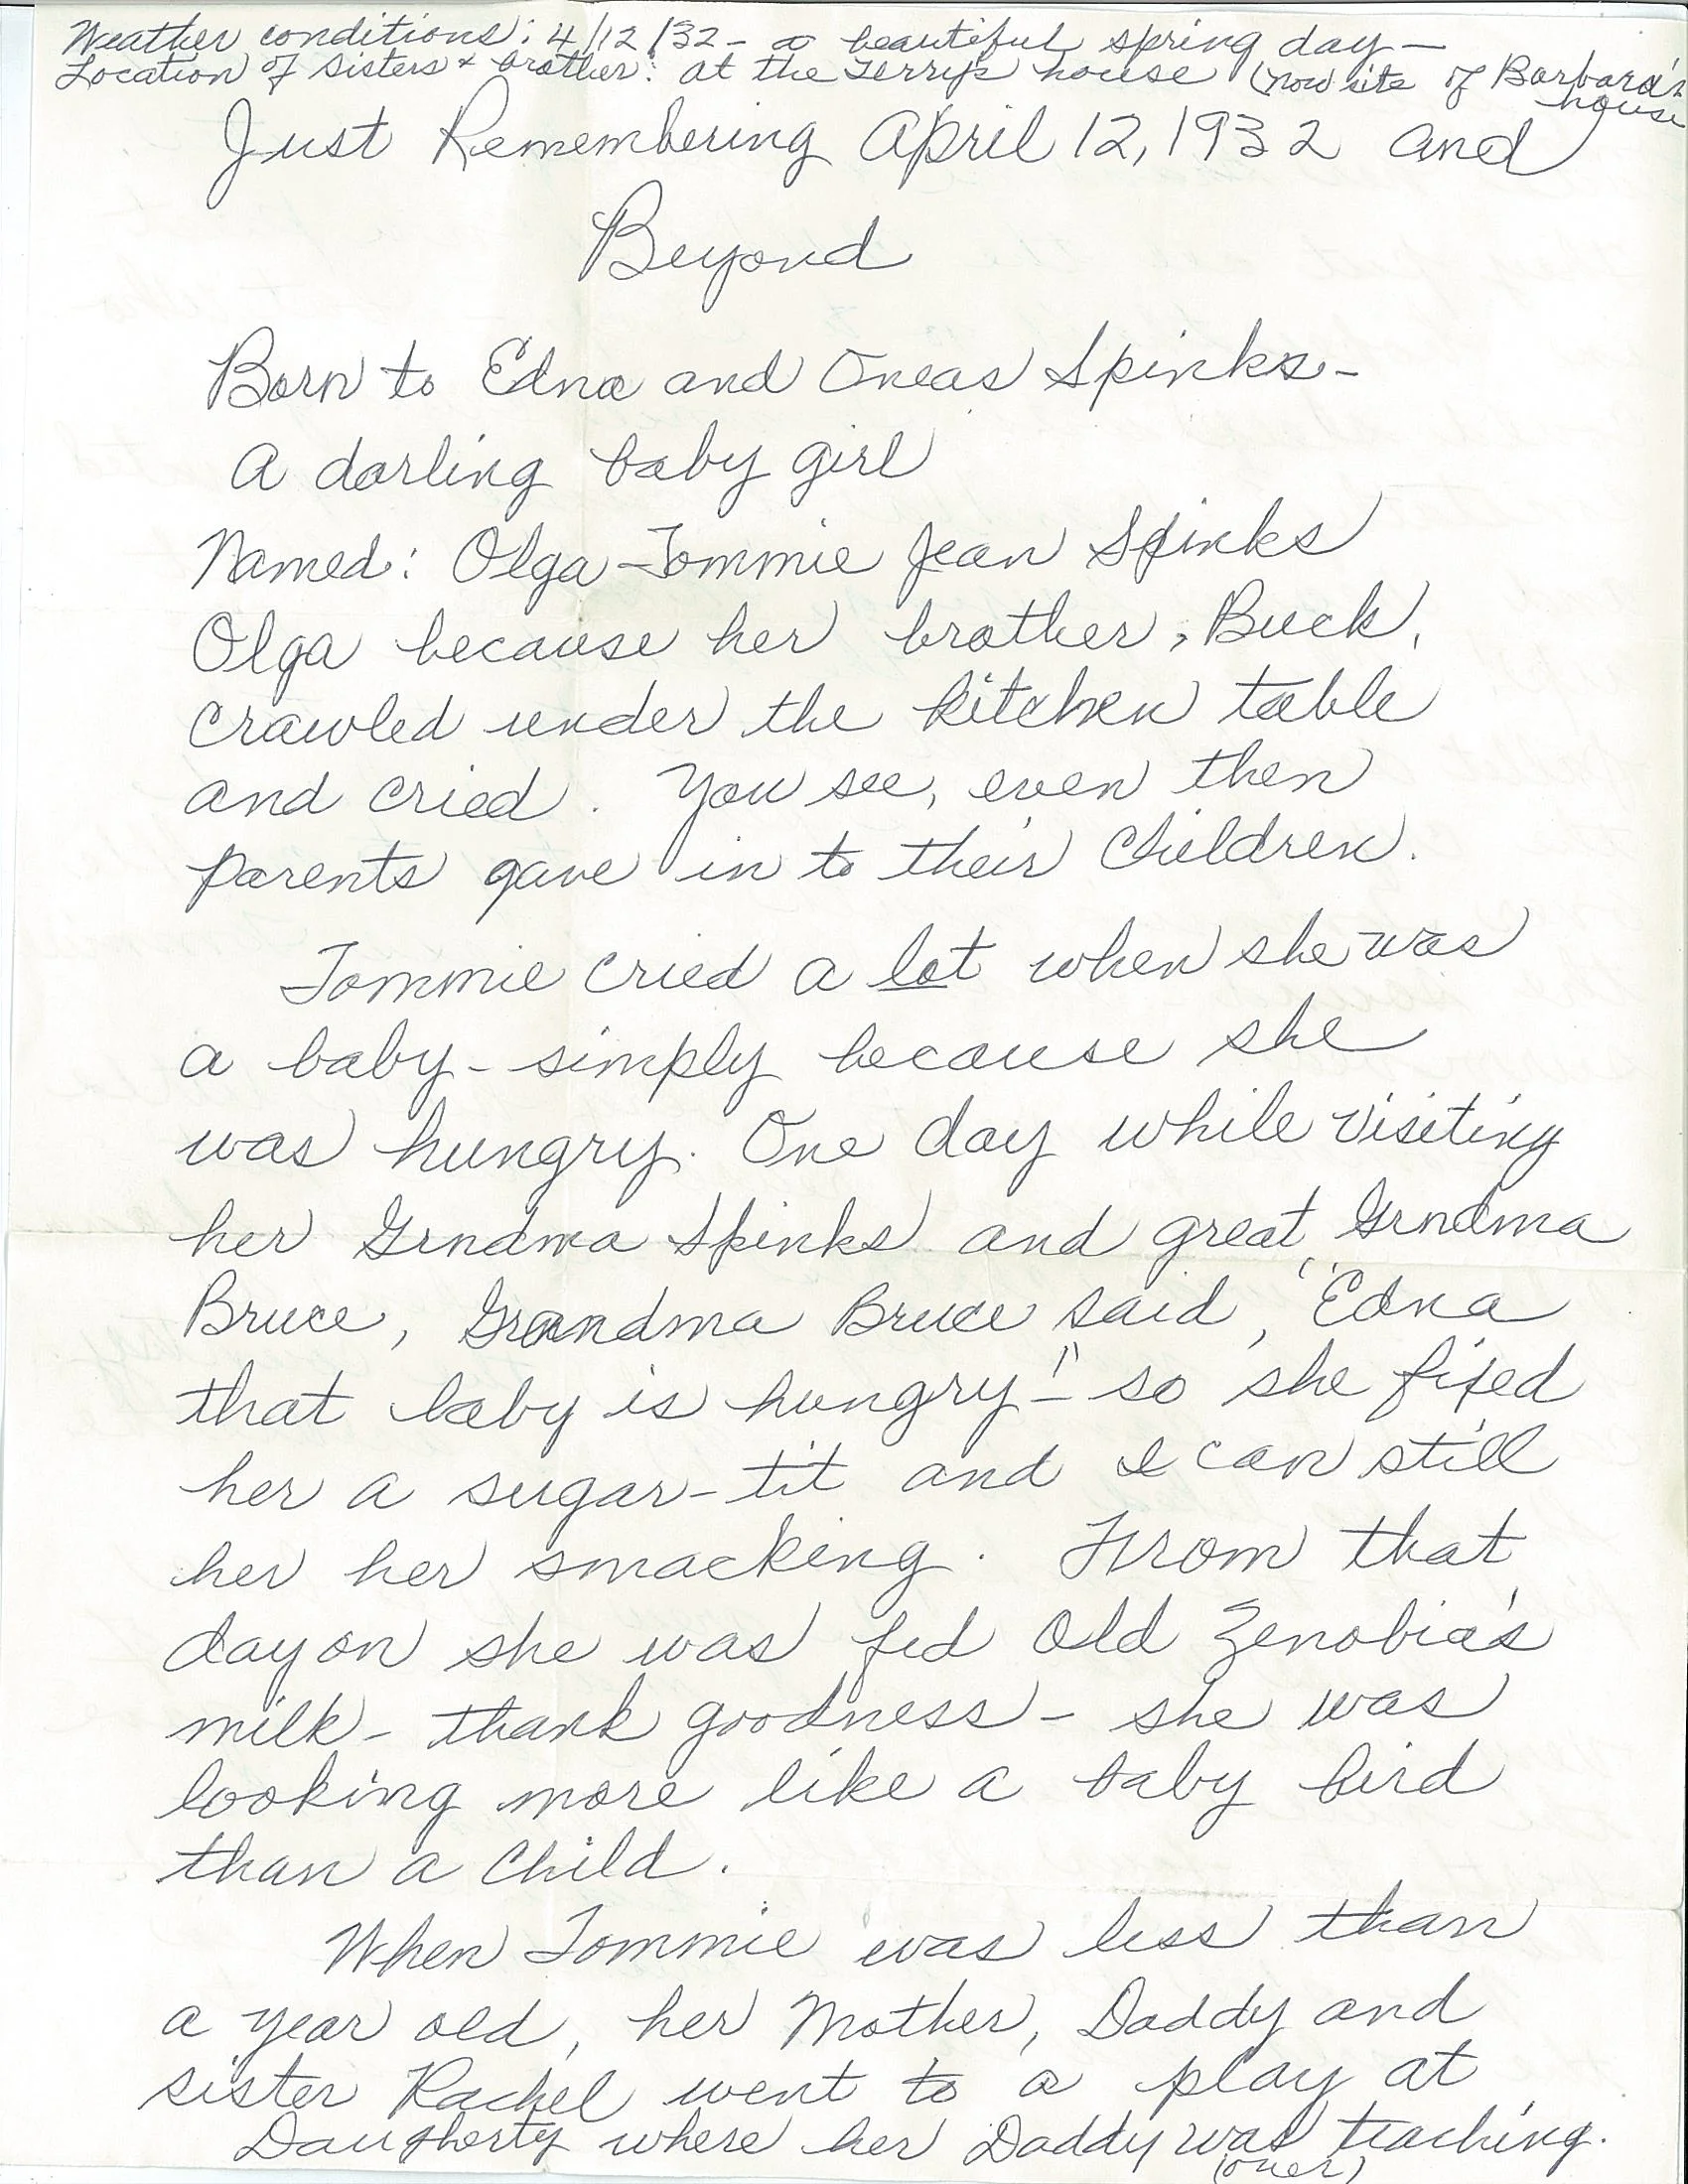 Weather conditions: 4/12/32 - a beautiful spring day -
Location of sisters + brother: at the Terry's house (now site of Barbara's
house
Just Remembering April 12, 1932 and
Beyond
Born to Edna and Oneas Spinks -
A darling baby girl
Named: Olga-Tommie Jean Spinks
Olga because her brother, Buck,
crawled under the kitchen table
and cried. You see, even then
parents gave in to their children.
Tommie cried a lot when she was
a baby - simply because she
was hungry. One day while visiting
her Grndma Spinks and great Grndma
Bruce, Grandma Bruce said, "Edna
that baby is hungry" - so she fixed
her a sugar-tit and I can still
her her smacking. From that
day on she was fed Old Zenobia's
milk - thank goodness - she was
looking more like a baby bird
than a child.
When Tommie was less than
a year old, her Mother, Daddy and
sister Rachel went to a play at
Daugherty where her Daddy was teaching.
(over)